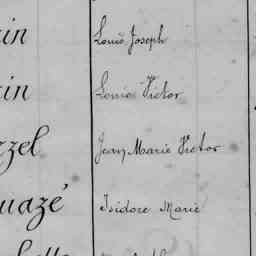 in Louis Joseph
in Louis Victor
zel Jean Marie Victor
uazé Isidore Marie